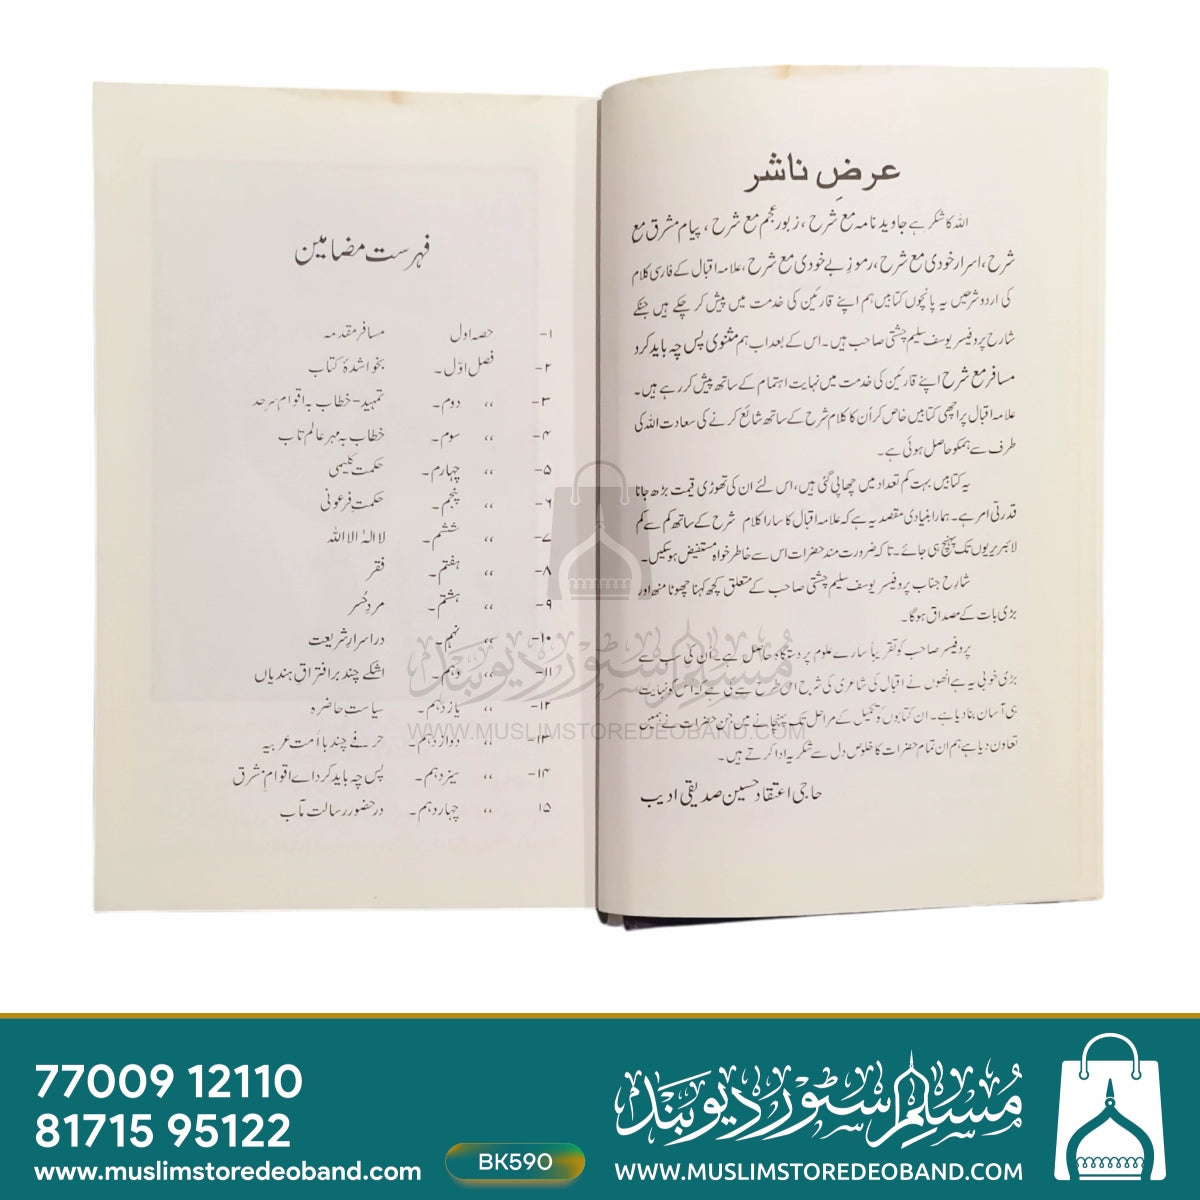 عرضِ ناشر
اللہ کا شکر ہے جاوید نامہ مع شرح، زبور عجم مع شرح، پیام مشرق مع
شرح، اسرار خودی مع شرح، رموزِ بے خودی مع شرح، علامہ اقبال کے فارسی کلام
کی اردو شرحیں یہ پانچوں کتابیں ہم اپنے قارئین کی خدمت میں پیش کر چکے ہیں جنکے
شارح پروفیسر یوسف سلیم چشتی صاحب ہیں۔ اس کے بعد اب ہم مثنوی پس چہ باید کرد
مسافر مع شرح اپنے قارئین کی خدمت میں نہایت اہتمام کے ساتھ پیش کر رہے ہیں۔
علامہ اقبال پر اچھی کتابیں خاص کر اُن کا کلام شرح کے ساتھ شائع کرنے کی سعادت اللہ کی
طرف سے ہمکو حاصل ہوئی ہے۔
یہ کتابیں بہت کم تعداد میں چھاپی گئی ہیں، اس لئے ان کی تھوڑی قیمت بڑھ جانا
قدرتی امر ہے۔ ہمارا بنیادی مقصد یہ ہے کہ علامہ اقبال کا سارا کلام شرح کے ساتھ کم سے کم
لائبریریوں تک پہنچ ہی جائے۔ تاکہ ضرورت مند حضرات اس سے خاطر خواہ مستفیض ہوسکیں۔
شارح جناب پروفیسر یوسف سلیم چشتی صاحب کے متعلق کچھ کہنا چھوٹا منھ اور
بڑی بات کے مصداق ہوگا۔
پروفیسر صاحب کو تقریباً سارے علوم پر دستگاہ حاصل ہے۔ اُن کی سب سے
بڑی خوبی یہ ہے انھوں نے اقبال کی شاعری کی شرح اس طرح سے کی ہے کہ اس کو نہایت
ہی آسان بنا دیا ہے۔ ان کتابوں کو تکمیل کے مراحل تک پہنچانے میں جن حضرات نے ہمیں
تعاون دیا ہے ہم ان تمام حضرات کا خلوص دل سے شکریہ ادا کرتے ہیں۔
حاجی اعتقاد حسین صدیقی ادیب
فہرست مضامین
۱- حصہ اول مسافر مقدمہ
۲- فصل اوّل۔ بخوانندۂ کتاب
۳- ،، دوم۔ تمہید-خطاب بہ اقوام سرحد
۴- ،، سوم۔ خطاب بہ مہر عالم تاب
۵- ،، چہارم۔ حکمت کلیمی
۶- ،، پنجم۔ حکمت فرعونی
۷- ،، ششم۔ لا الٰہ الا اللہ
۸- ،، ہفتم۔ فقر
۹- ،، ہشتم۔ مردِ حُر
۱۰- ،، نہم۔ در اسرار شریعت
۱۱- ،، دہم۔ اشکے چند بر افتراق ہندیاں
۱۲- ،، یازدہم۔ سیاست حاضرہ
۱۳- ،، دوازدہم۔ حرفے چند با اُمت عربیہ
۱۴- ،، سیزدہم۔ پس چہ باید کرد اے اقوام شرق
۱۵ ،، چہاردہم۔ در حضور رسالت مآب
مُسلِم سٹور دیوبند
WWW.MUSLIMSTOREDEOBAND.COM
77009 12110
81715 95122
www.muslimstoredeoband.com
BK590
مُسلِم سٹور دیوبند
WWW.MUSLIMSTOREDEOBAND.COM